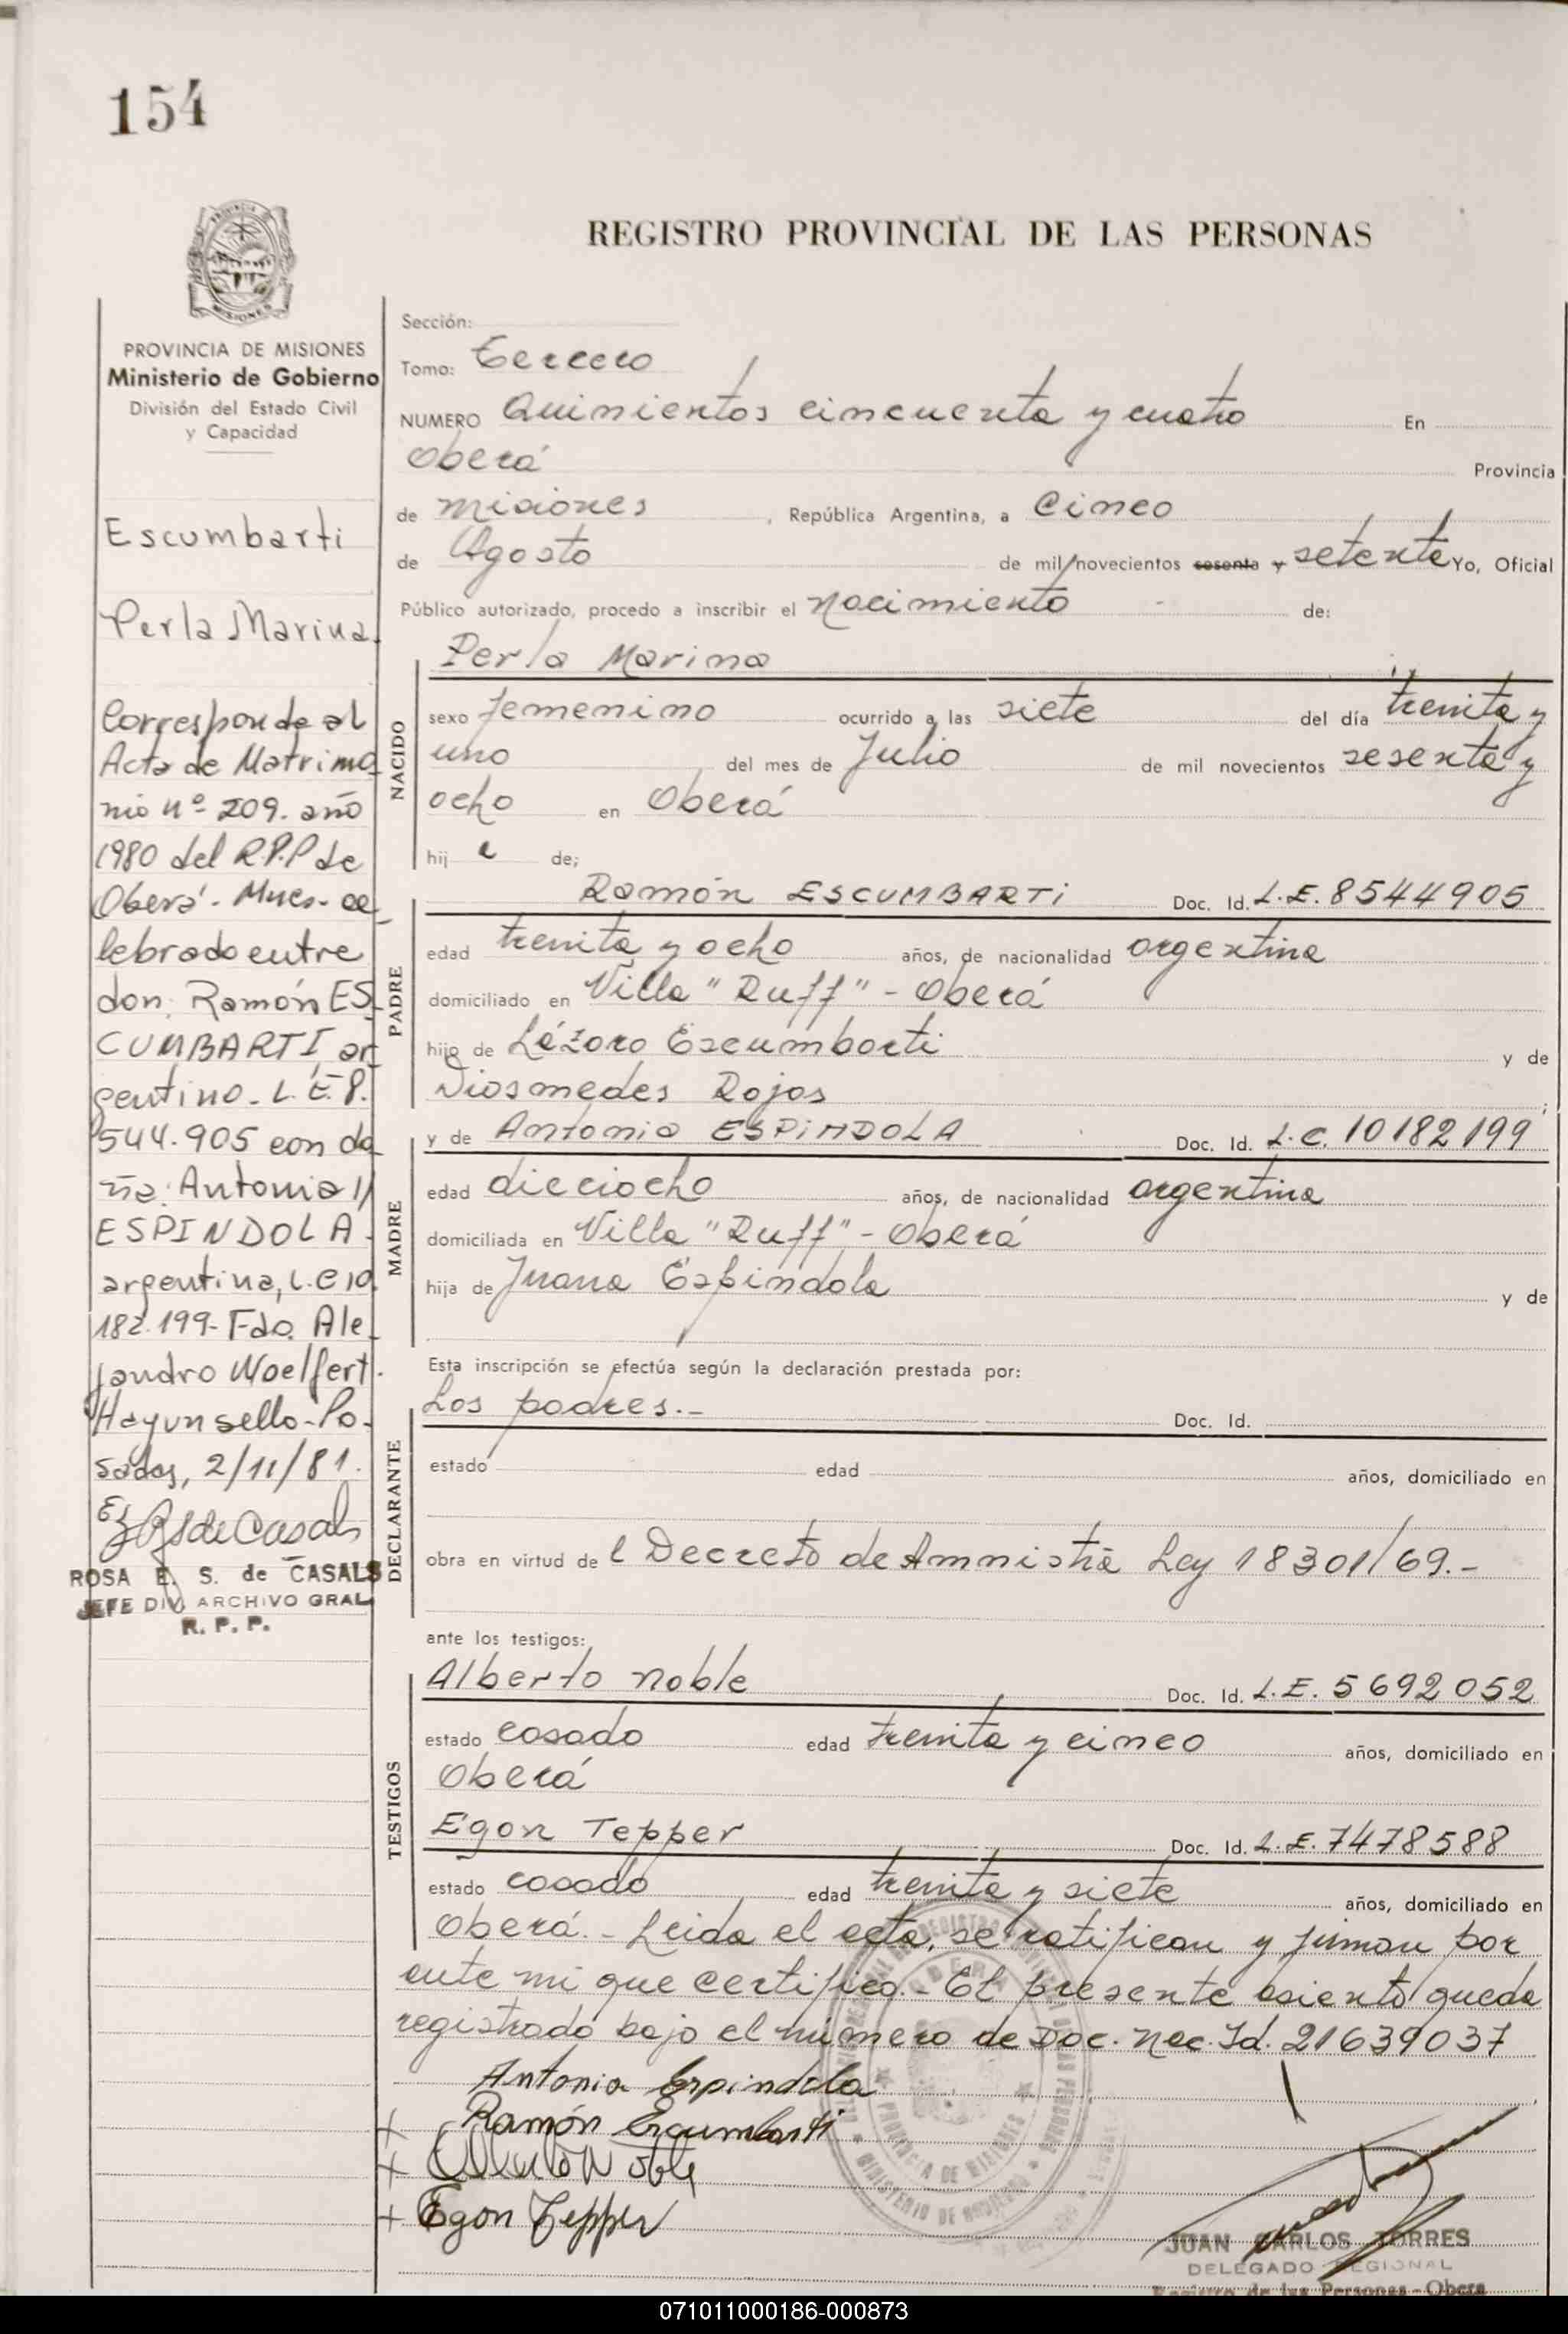 154
REGISTRO PROVINCIAL DE LAS PERSONAS
PROVINCIA DE MISIONES
Ministerio de Gobierno
División del Estado Civil
y Capacidad
Escumbarti
Perla Marina.
Corresponde al
Acta de Matrimo
nio nº 209. año
1980 del R.P.P de
Oberá - Mnes- ce
lebrado entre
don: Ramón ES
CUMBARTI, ar
gentino - L.E. 8.
544.905 con do
ña: Antonia //
ESPINDOLA -
argentina, L.C 10.
182.199- Fdo. Ale
jandro Woelfert.
Hay un sello - Po-
sadas, 2/11/81.
ROSA E. S. de CASALS
JEFE DIV. ARCHIVO GRAL.
R. P. P.
Sección:
Tomo: Tercero
NUMERO Quinientos cincuenta y cuatro En
Oberá Provincia
de Misiones, República Argentina, a Cinco
de Agosto de mil novecientos sesenta y setenta Yo, Oficial
Público autorizado, procedo a inscribir el Nacimiento de:
Perla Marina
NACIDO
sexo femenino ocurrido a las siete del día treinta y
uno del mes de Julio de mil novecientos sesenta y
ocho en Oberá
hij a de;
PADRE
Ramón ESCUMBARTI Doc. Id. L.E. 8544905
edad treinta y ocho años, de nacionalidad argentina
domiciliado en Villa "Ruff" - Oberá
hijo de Lázaro Escumbarti y de
Diosmedes Rojas ;
MADRE
y de Antonia ESPINDOLA Doc. Id. L.C. 10182199
edad dieciocho años, de nacionalidad argentina
domiciliada en Villa "Ruff" - Oberá
hija de Juana Espindola y de
Esta inscripción se efectúa según la declaración prestada por:
DECLARANTE
Los padres.- Doc. Id.
estado edad años, domiciliado en
obra en virtud de l Decreto de Amnistia Ley 18301/69.-
ante los testigos:
TESTIGOS
Alberto Noble Doc. Id. L.E. 5692052
estado casado edad treinta y cinco años, domiciliado en
Oberá
Egon Tepper Doc. Id. L.E. 7478588
estado casado edad treinta y siete años, domiciliado en
Oberá. - Leida el acta, se ratifican y firman por
ante mi que certifico.- El presente asiento queda
registrado bajo el número de Doc. Nac. Id. 21639037
Antonia Espindola
Ramón Escumbarti
Alberto Noble
Egon Tepper
JUAN CARLOS TORRES
DELEGADO REGIONAL
Registro de las Personas - Oberá
071011000186-000873